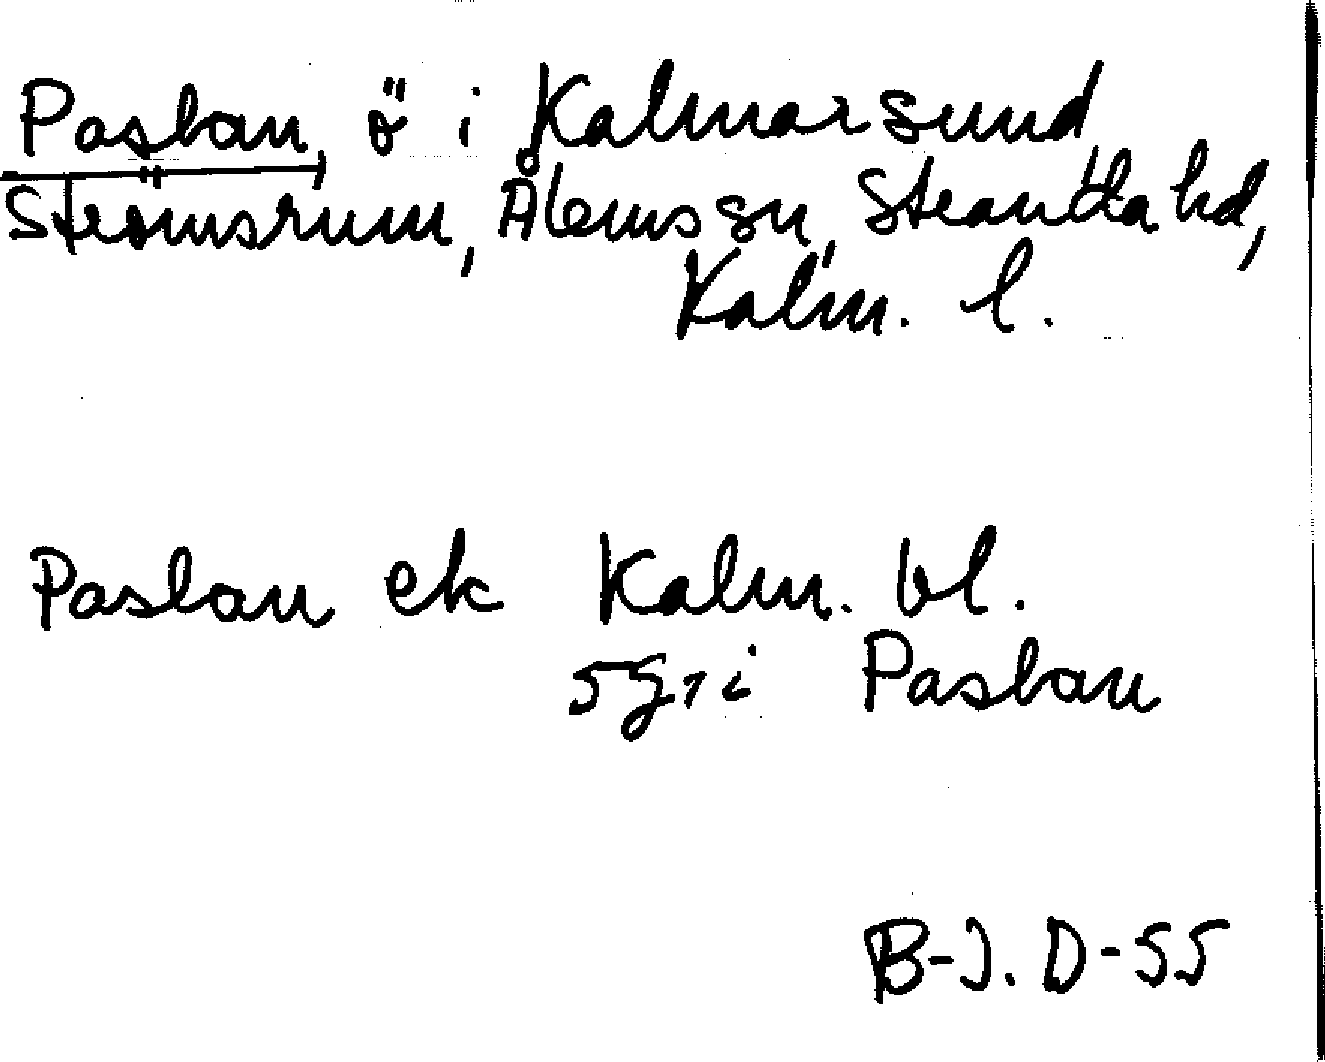 Paslan, ö i Kalmarsund
Strömsrum, Ålems sn, Stranda hd,
Kalm. l.
Paslan ek Kalm. bl.
5g7i Paslan
B-J. D-55